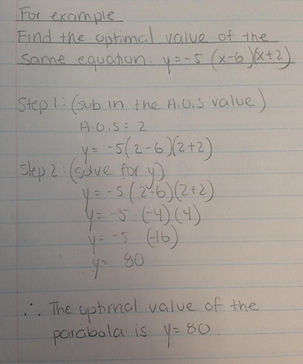 For example
Find the optimal value of the
same equation: y=-5 (x-6)(x+2)
Step 1: (sub in the A.O.S value)
A.O.S: 2
y= -5(2-6)(2+2)
Step 2: (solve for y)
y= -5 (2-6)(2+2)
y= -5 (-4)(4)
y= -5 (-16)
y= 80
∴ The optimal value of the
parabola is y=80